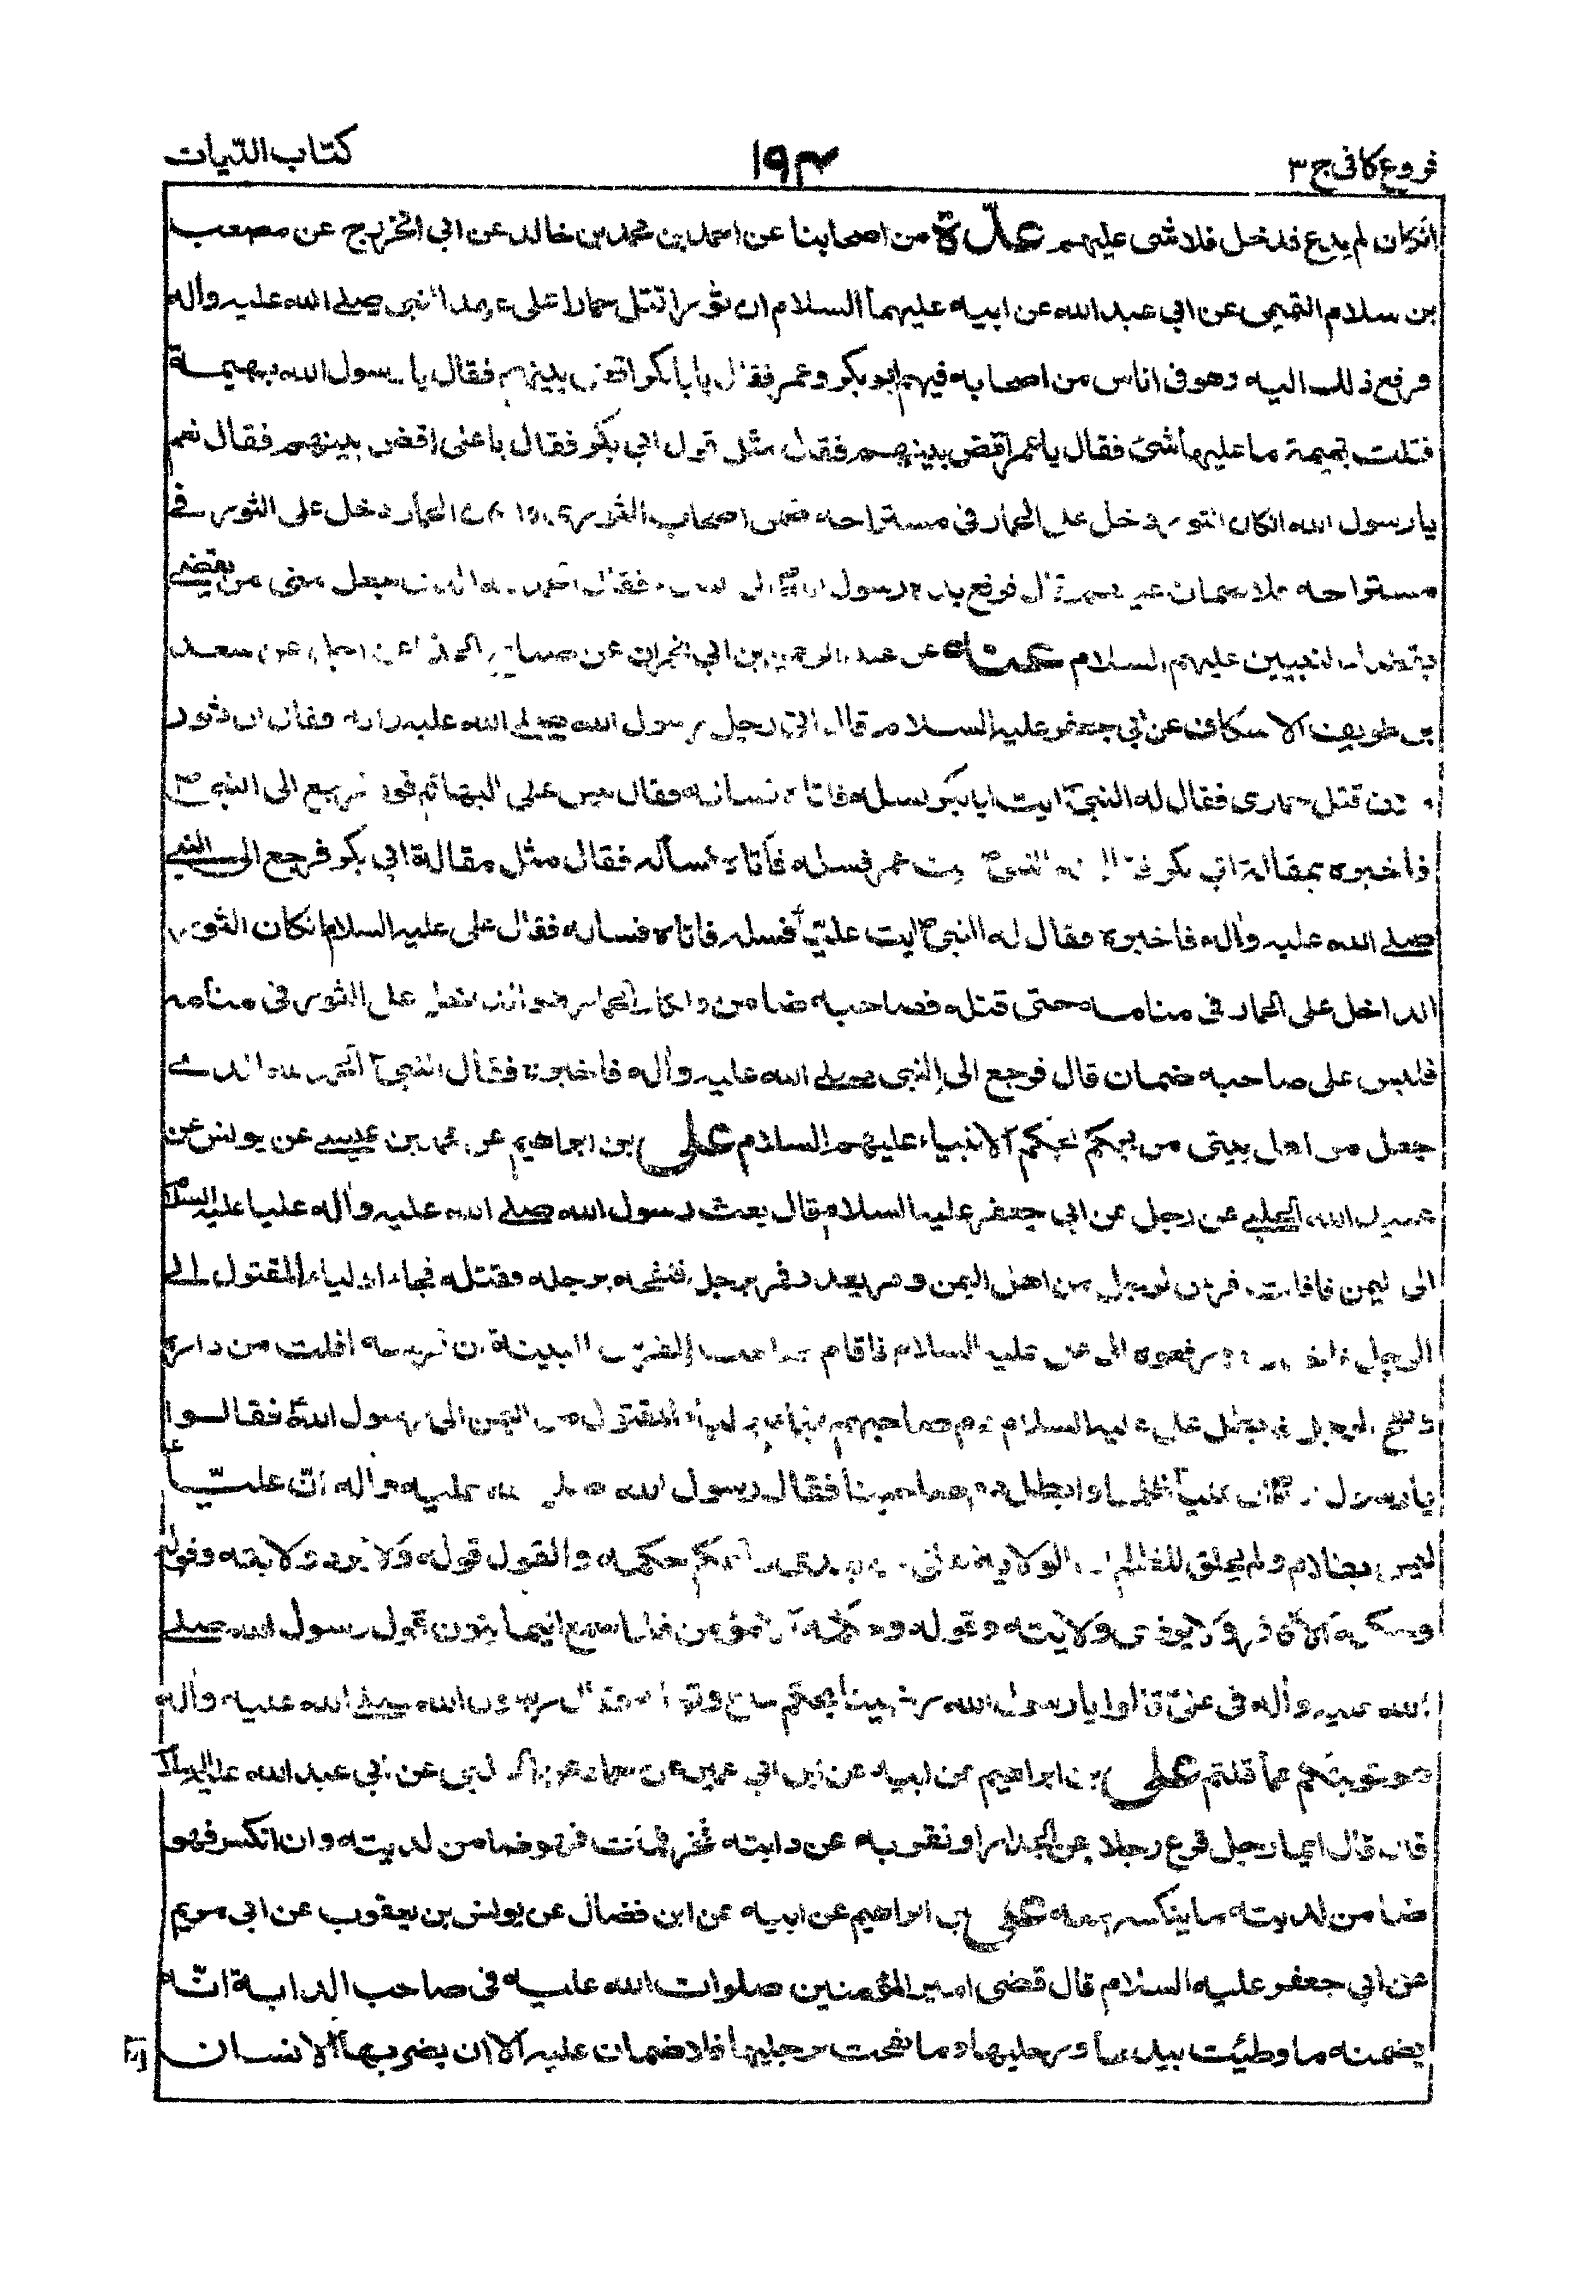 فروع كافى ج ٣
١٩٣
كتاب الديات
انكان لم يدع فدخل فلا شى عليهم عدّة من اصحابنا عن احمد بن محمد بن خالد عن ابى الخزرج عن مصعب
بن سلام التميمى عن ابى عبد الله عن ابيه عليهما السلام ان ثورا قتل حمارا على عهد النبى صلى الله عليه وآله
فرفع ذلك اليه وهو فى اناس من اصحابه فيهم ابو بكر وعمر فقال يا ابا بكر اقض بينهم فقال يا رسول الله بهيمة
قتلت بهيمة ما عليها شئ فقال يا عمر اقض بينهم فقال مثل قول ابى بكر فقال يا على اقض بينهم فقال نعم
يا رسول الله انكان الثور دخل على الحمار فى مستراحه ضمن اصحاب الثور الحمار دخل على الثور فى
مستراحه فلا ضمان عليهم قال فرفع يده رسول الله الى فقال الحمد لله الذى جعل منى من يقضى
بقضاء النبيين عليهم السلام عنه عن عبد الرحمن بن ابى نجران عن صباح الحذاء عن رجل عن سعد
بن طريف الاسكاف عن ابى جعفر عليه السلام قال اتى رجل رسول الله صلى الله عليه وآله فقال ان ثور
فلان قتل حمارى فقال له النبى ايت ابا بكر فسله فاتاه فسأله فقال ليس على البهائم قود فرجع الى النبى
فأخبره بمقالة ابى بكر فقال له النبى ايت عمر فسله فأتاه فسأله فقال مثل مقالة ابى بكر فرجع الى النبى
صلى الله عليه وآله فاخبره فقال له النبى ايت عليّا فسله فاتاه فساله فقال على عليه السلام انكان الثور
الداخل على الحمار فى منامه حتى قتله فصاحبه ضامن وانكان الحمار هو الداخل على الثور فى منامه
فليس على صاحبه ضمان قال فرجع الى النبى صلى الله عليه وآله فاخبره فقال النبى الحمد لله الذى
جعل من اهل بيتى من يحكم بحكم الانبياء عليهم السلام على بن ابراهيم عن محمد بن عيسى عن يونس عن
عبيد الله الحلبى عن رجل عن ابى جعفر عليه السلام قال بعث رسول الله صلى الله عليه وآله عليا عليه السلام
الى اليمن فافلت فرس لرجل من اهل اليمن ومر يعدو فمر برجل فنفحه برجله فقتله فجاء اولياء المقتول الى
الرجل فاخذوه فرفعوه الى على عليه السلام فاقام صاحب الفرس البينة ان فرسه افلت من داره
ونفح الرجل فابطل على عليه السلام دم صاحبهم فجاء اولياء المقتول من اليمن الى رسول الله فقالوا
يا رسول الله ان عليا ظلمنا وابطل دم صاحبنا فقال رسول الله صلى الله عليه وآله انّ عليّا
ليس بظلام ولم يخلق للظلم ان الولاية والحكم حكمه والقول قوله ولا يرد ولايته وقوله
وحكمه الا كافر ولا يرضى ولايته وقوله وحكمه الا مؤمن فلما سمع اليمانيون قول رسول الله صلى
الله عليه وآله فى على قالوا يا رسول الله رضينا بحكم على وقوله فقال رسول الله صلى الله عليه وآله
هو توبتكم مما قلتم على بن ابراهيم عن ابيه عن ابن ابى عمير عن حماد عن الحلبى عن ابى عبد الله عليه السلام
قال قال ايما رجل فزع رجلا عن الجدار او نفر به عن دابته فخر فمات فهو ضامن لديته وان انكسر فهو
ضامن لديته ما ينكسر منه على بن ابراهيم عن ابيه عن ابن فضال عن يونس بن يعقوب عن ابى مريم
عن ابى جعفر عليه السلام قال قضى امير المؤمنين صلوات الله عليه فى صاحب الدابة انّه
يضمنه ما وطئت بيدها ورجليها وما نفحت برجليها فلا ضمان عليه الا ان يضربها الانسان